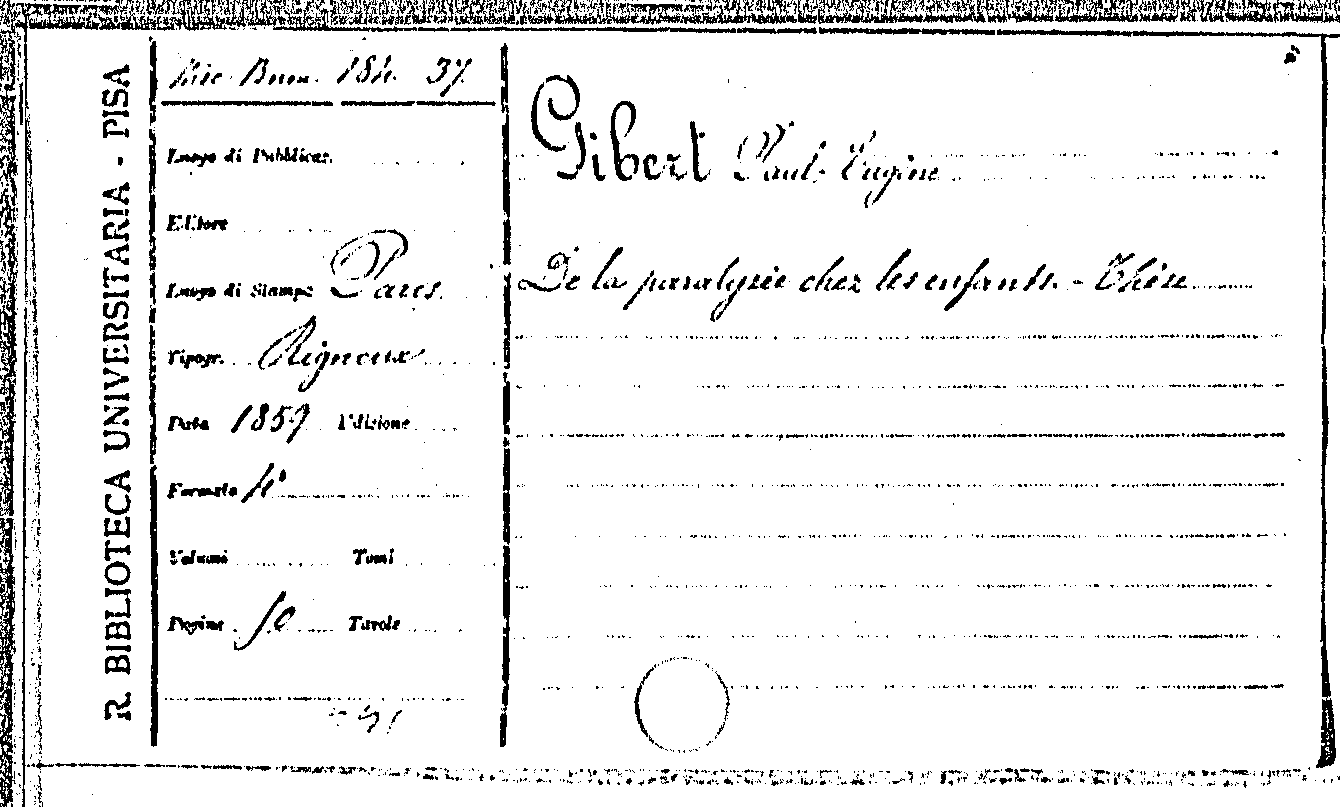 R. BIBLIOTECA UNIVERSITARIA - PISA
Misc. 184. 37.
Luogo di Pubblicaz.
Editore
Luogo di Stampa Paris.
Tipogr. Rignoux
Data 1859 Edizione
Formato 4°
Volumi Tomi
Pagine 50 Tavole
Gibert Paul-Eugène
De la paralysie chez les enfants. - Thèse